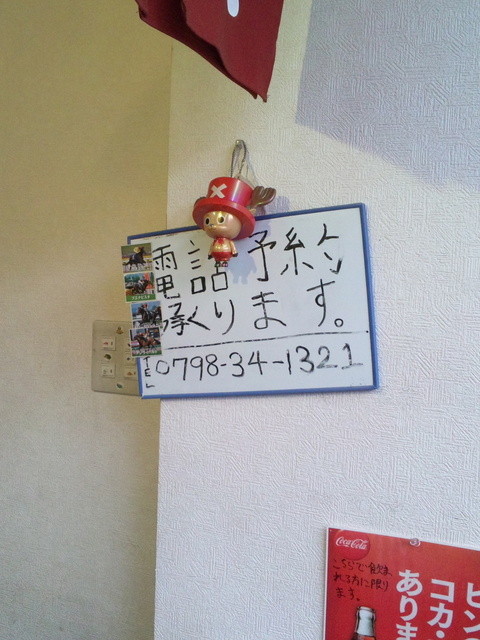 電話予約
承くります。
TEL 0798-34-1321
Coca-Cola
こちらで飲まれる方に限ります。
ビン
コカ・
ありま